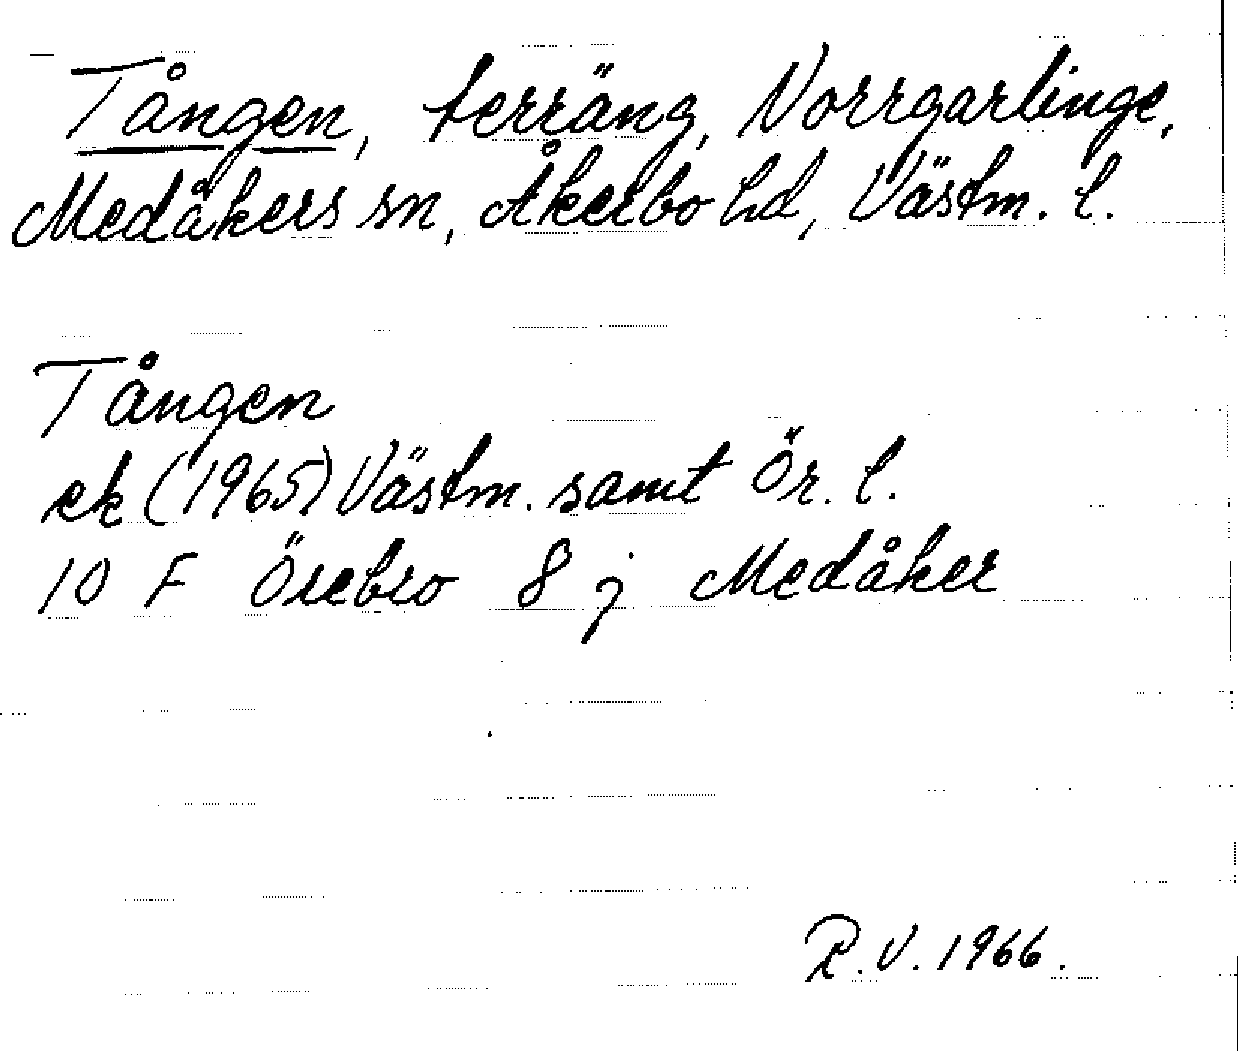 Tången, terräng, Norrgarlinge,
Medåkers sn, Åkerbo hd, Västm. l.
Tången
ek (1965) Västm. samt Ör. l.
10 F Örebro 8 j Medåker
R.V. 1966.